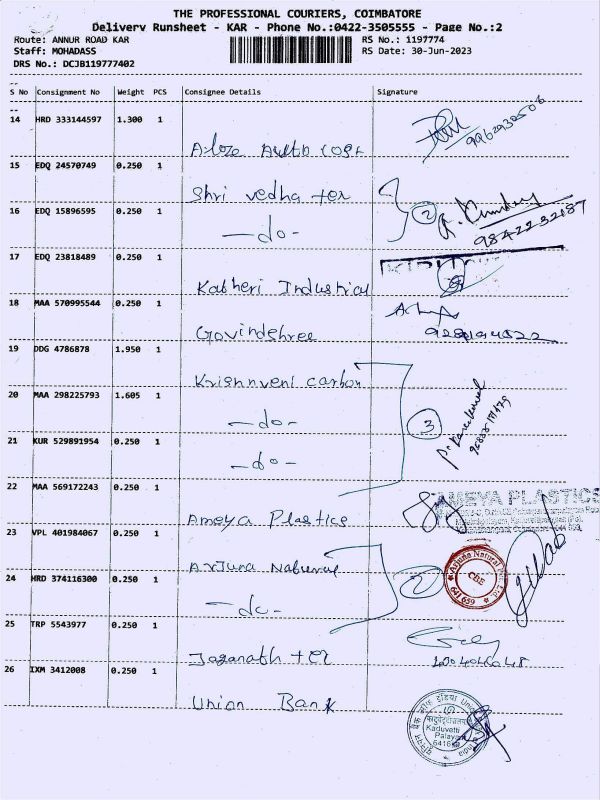 THE PROFESSIONAL COURIERS, COIMBATORE
Delivery Runsheet - KAR - Phone No.:0422-3505555 - Page No.:2
Route: ANNUR ROAD KAR RS No.: 1197774
Staff: MOHADASS RS Date: 30-Jun-2023
DRS No.: DCJB119777402
S No Consignment No Weight PCS Consignee Details Signature
14 HRD 333144597 1.300 1
Auto
15 EDQ 24570749 0.250 1
Shri vedha ter
16 EDQ 15896595 0.250 1
-do-
2
9842232187
17 EDQ 23818489 0.250 1
Industrial
18 MAA 570995544 0.250 1
Govindshree
19 DDG 4786878 1.950 1
Krishnveni carbon
20 MAA 298225793 1.605 1
-do-
3
21 KUR 529891954 0.250 1
-do-
22 MAA 569172243 0.250 1
AMEYA PLASTICS
Ameya Plastics
23 VPL 401984067 0.250 1
Arjuna Natural
Arjuna Natural Pvt. Ltd.
CBE
641 659
24 HRD 374116300 0.250 1
-do-
2
25 TRP 5543977 0.250 1
Jaganath ter
26 IXM 3412008 0.250 1
Union Bank
Kaduvetti
Palayam